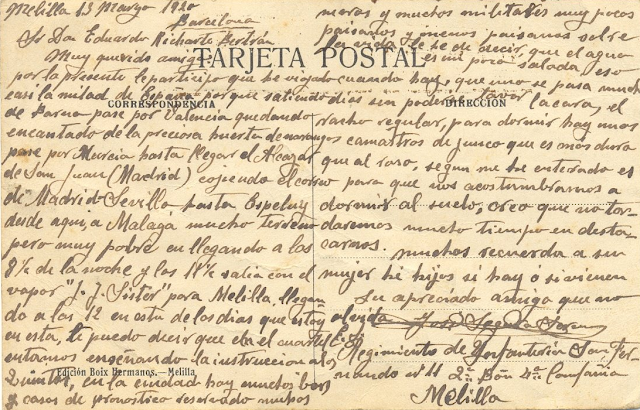 Melilla 13 marzo 1920
Barcelona
Sr Don Eduardo Richarte Bertrán
Muy querido amigo
por la presente te participo que he viajado
casi la mitad de España porque saliendo
de pase por Valencia quedando
encantado de la preciosa huerta de naranjos
pase por Murcia hasta llegar el Alcazar
de San Juan (Madrid) cojiendo el correo
de Madrid Sevilla hasta Espeluy
desde aqui a Malaga mucho terreno
pero muy pobre en llegando a las
8½ de la noche y las salia con el
vapor "J. J. Sister" para Melilla, llegan
do a las 12 en esta de los dias que estoy
en esta, te puedo decir que en el cuartel
entamos engeñando la instruccion a los
quintos, en la ciudad hay muchos bares
y casas de pronostico reservado muchos
TARJETA POSTAL
CORRESPONDENCIA
DIRECCIÓN
moras y muchos militares muy pocos
paisanos y menos paisanas sobre
la vida te he de decir, que el agua
es un poco salada eso
cuando hay, que uno se pasa muchos
dias sin poder lavar la cara, el
rancho regular, para dormir hay unos
camastros de junco que es mas dura
que al raso, segun me he enterado es
para que nos acostumbramos a
dormir al suelo, creo que no tar
daremos mucho tiempo en desta
carnos.
muchos recuerda a su
mujer he hijos si hay ó si vienen
Su apreciado amigo que no
olvida José Segura
Regimiento de Infanteria San Fer
nando nº 11 2º Bon 4ª Compañia
Melilla
Edición Boix Hermanos.—Melilla.